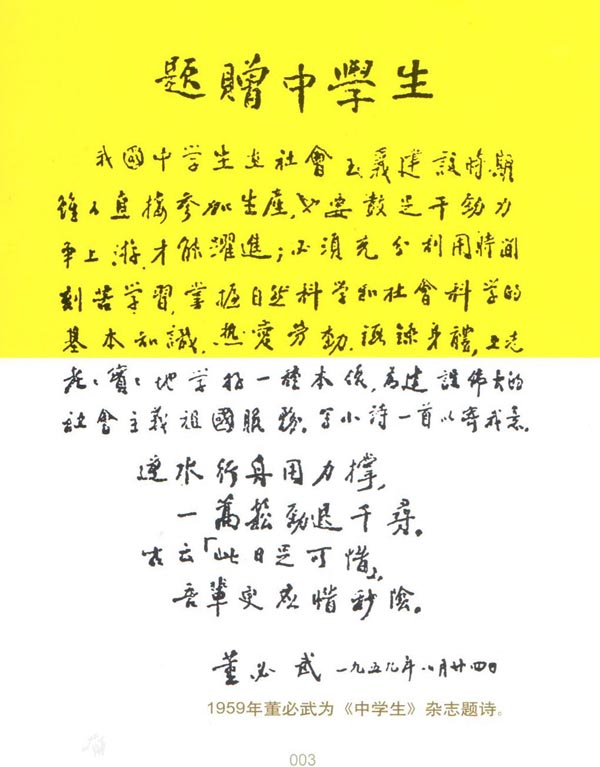 题贈中學生
我國中学生在社會主義建設時期
雖不直接參加生產,也要鼓足干劲力
争上游,才能躍進;必須充分利用時間
刻苦学習,掌握自然科学和社會科学的
基本知識,热愛劳動,鍛鍊身體,
實〻地学好一種本領,為建設偉大的
社會主義祖國服務。写小詩一首以寄我意。
逆水行舟用力撑,
一篙鬆勁退千尋。
古云「此日足可惜」,
吾輩更應惜秒陰。
董必武 一九五九年八月廿四日
1959年董必武为《中学生》杂志题诗。
003